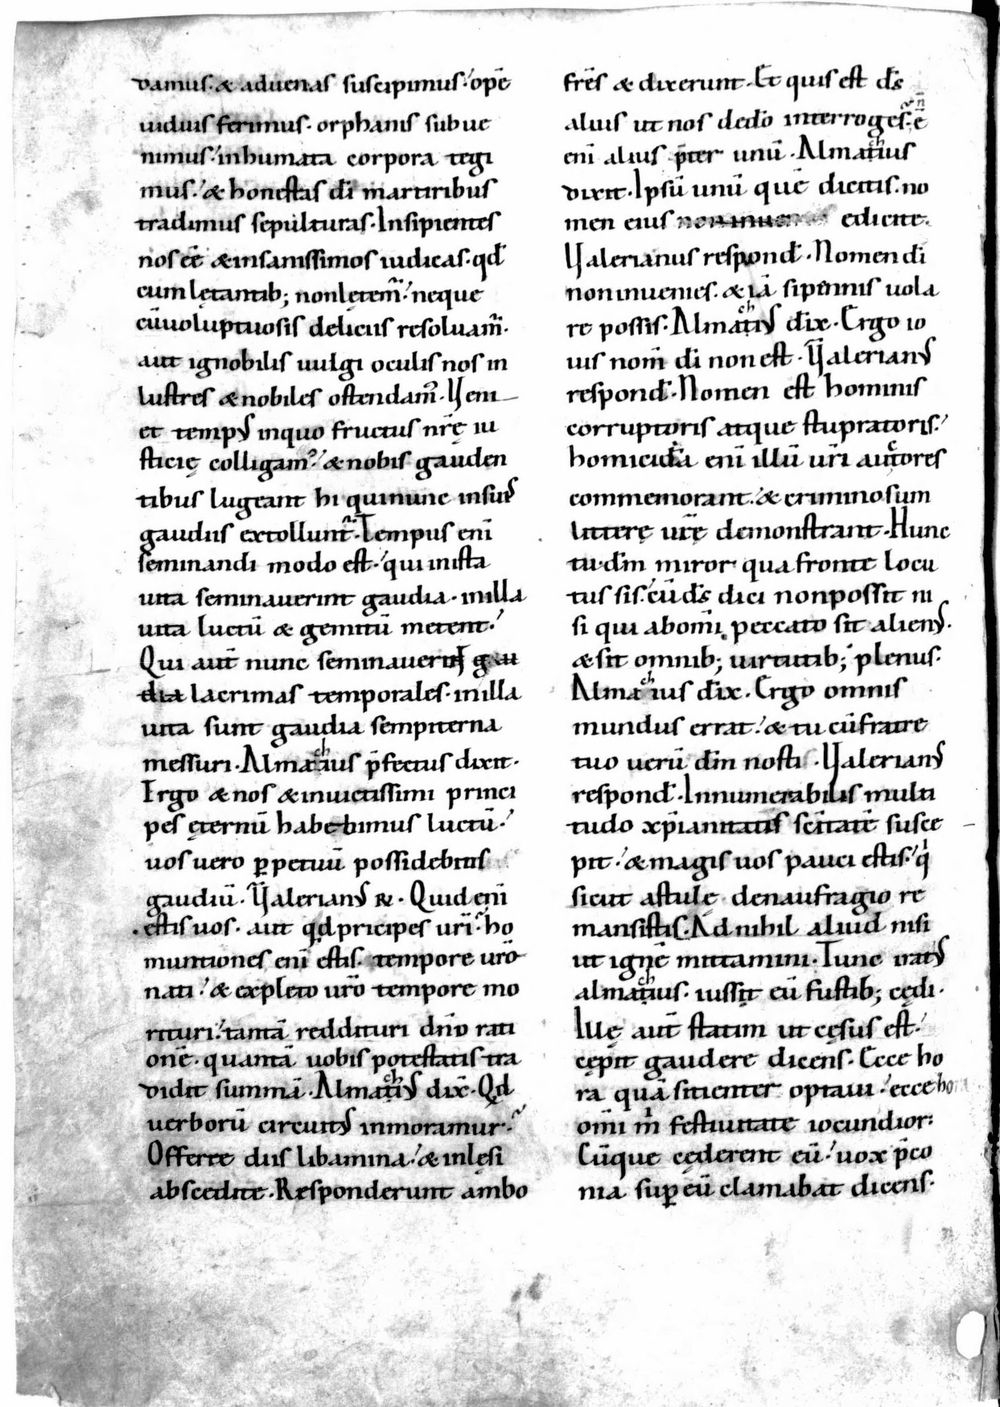 damus· & aduenas suscipimus· opē
uiduis ferimus· orphanis subue
nimus· inhumata corpora tegi
mus· & honestas dī martiribus
tradimus sepulturas· Insipientes
nos eē & insanissimos iudicas· qđ
cum lętantib; non lętem̄· neque
cū uoluptuosis deliciis resoluam̄·
aut ignobilis uulgi oculis nos in
lustres & nobiles ostendam̄· Veni
et temp᷒ inquo fructus nr̄ę iu
sticię colligam̄· & nobis gauden
tibus lugeant hi qui nunc insuis
gaudiis extollunt̄· Tempus enī
seminandi modo est· qui inista
uita seminauerint gaudia· inilla
uita luctū & gemitū metent·
Qui aut̄ nunc seminauerint gau
dia lacrimas temporales· inilla
uita sunt gaudia sempiterna
messuri· Almachius p̄fectus dixit·
Ergo & nos & inuictissimi princi
pes ęternū habebimus luctū·
uos uero ꝑpetuū possidebitis
gaudiū· Valerian᷒ R̄· Quid enī
estis uos· aut qđ pricipes uri· ho
muntiones enī estis· tempore uro
nati· & expleto ur̄o tempore mo
rituri· tantā reddituri dn̄o rati
onē· quantā uobis potestatis tra
didit summā· Almachi᷒ dix̄· Qđ
uerborū circuit᷒ inmoramur·
Offerte diis libamina· & inlęsi
abscedite· Responderunt ambo
fr̄es & dixerunt· Et quis est d̄s
alius ut nos dedō interroges· n̄ ē
enī alius p̄ter unū· Almachius
dixit· Ipsū unū quē dicitis· no
men eius edicite·
Valerianus respond̄· Nomen di
non inuenies· & iā si pennis uola
re possis· Almachi᷒ dix̄· Ergo io
uis nom̄ dī non est· Valerian᷒
respond̄· Nomen est hominis
corruptoris atque stupratoris·
homicida enī illū ur̄i auctores
commemorant· & criminosum
litterę ur̄ę demonstrant· Hunc
tu dm̄ miror qua fronte locu
tus sis· cū d̄s dici non possit ni
si qui ab omī peccato sit alien᷒·
& sit omnib; uirtutib; plenus·
Almachius dix̄· Ergo omnis
mundus errat· & tu cū fratre
tuo uerū dm̄ nosti· Valerian᷒
respond̄· Innumerabilis multi
tudo xp̄ianitatis sc̄itatē susce
pit· & magis uos pauci estis· q̇
sicut astulę denaufragio re
mansistis· Ad nihil aliud nisi
ut ignē mittamini· Tunc irat᷒
almachius· iussit eū fustib; cędi·
Ille aut̄ statim ut cęsus est·
cępit gaudere dicens· Ecce ho
ra quā sitienter optaui· ecce hora
omī m̄ festiuitate iocundior·
Cūque cęderent eū· uox p̄co
nia suꝑ eū clamabat dicens·